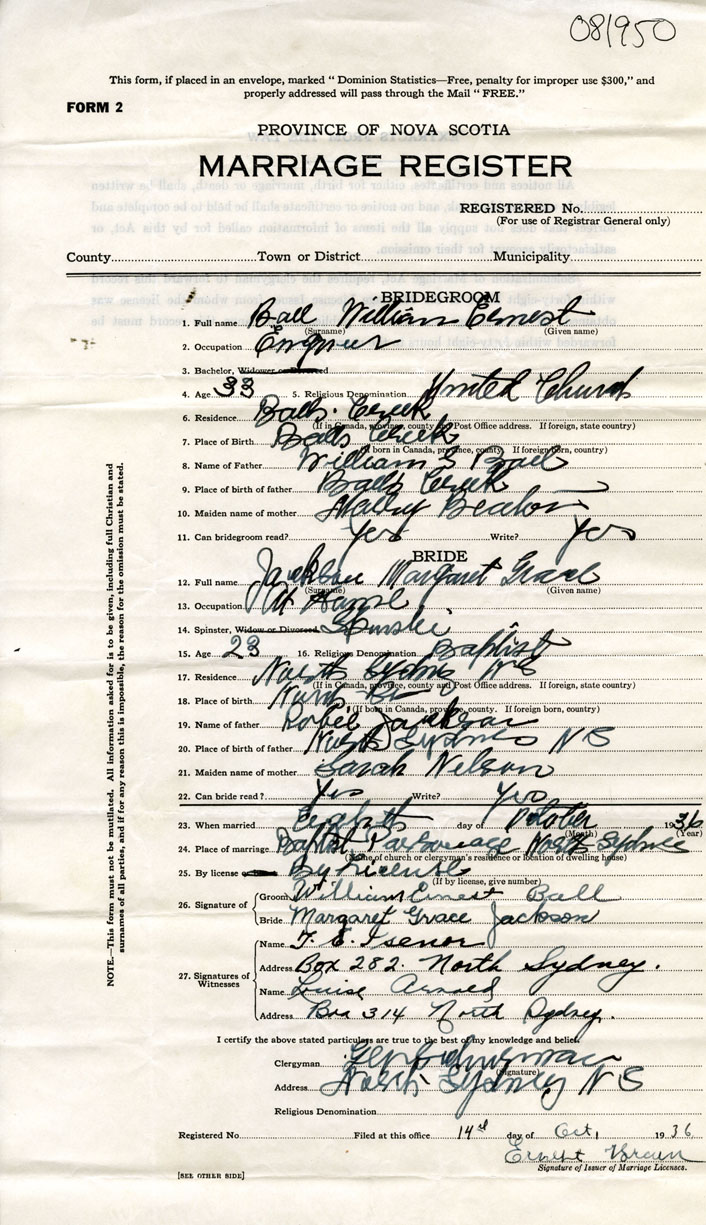 081950
This form, if placed in an envelope, marked " Dominion Statistics—Free, penalty for improper use $300," and
properly addressed will pass through the Mail " FREE."
FORM 2
PROVINCE OF NOVA SCOTIA
MARRIAGE REGISTER
REGISTERED No.
(For use of Registrar General only)
County Town or District Municipality
BRIDEGROOM
1. Full name Ball William Ernest
(Surname) (Given name)
2. Occupation Engineer
3. Bachelor, Widower or Divorced
4. Age 33 5. Religious Denomination United Church
6. Residence Balls Creek
(If in Canada, province, county and Post Office address. If foreign, state country)
7. Place of Birth Balls Creek
(If born in Canada, province, county. If foreign born, country)
8. Name of Father William S Ball
9. Place of birth of father Balls Creek
10. Maiden name of mother
11. Can bridegroom read? Yes Write? Yes
BRIDE
12. Full name Jackson Margaret Grace
(Surname) (Given name)
13. Occupation At Home
14. Spinster, Widow or Divorced Spinster
15. Age 23 16. Religious Denomination Baptist
17. Residence North Sydney N S
(If in Canada, province, county and Post Office address. If foreign, state country)
18. Place of birth North
(If born in Canada, province, county. If foreign born, country)
19. Name of father Robie Jackson
20. Place of birth of father North Sydney N S
21. Maiden name of mother Sarah Nelson
22. Can bride read? Yes Write? Yes
23. When married Eighth day of October 1936
(Month) (Year)
24. Place of marriage Baptist Parsonage North Sydney
(Name of church or clergyman's residence or location of dwelling house)
25. By license By License
(If by license, give number)
26. Signature of
Groom William Ernest Ball
Bride Margaret Grace Jackson
27. Signatures of Witnesses
Name T. E. Isenor
Address Box 282. North Sydney.
Name Louise Arnold
Address Box 314 North Sydney.
I certify the above stated particulars are true to the best of my knowledge and belief.
Clergyman
(Signature)
Address North Sydney N S
Religious Denomination
Registered No. Filed at this office 14th day of Oct 1936
Ernest Brown
Signature of Issuer of Marriage Licenses.
[SEE OTHER SIDE]
NOTE.—This form must not be mutilated. All information asked for is to be given, including full Christian and
surnames of all parties, and if for any reason this is impossible, the reason for the omission must be stated.